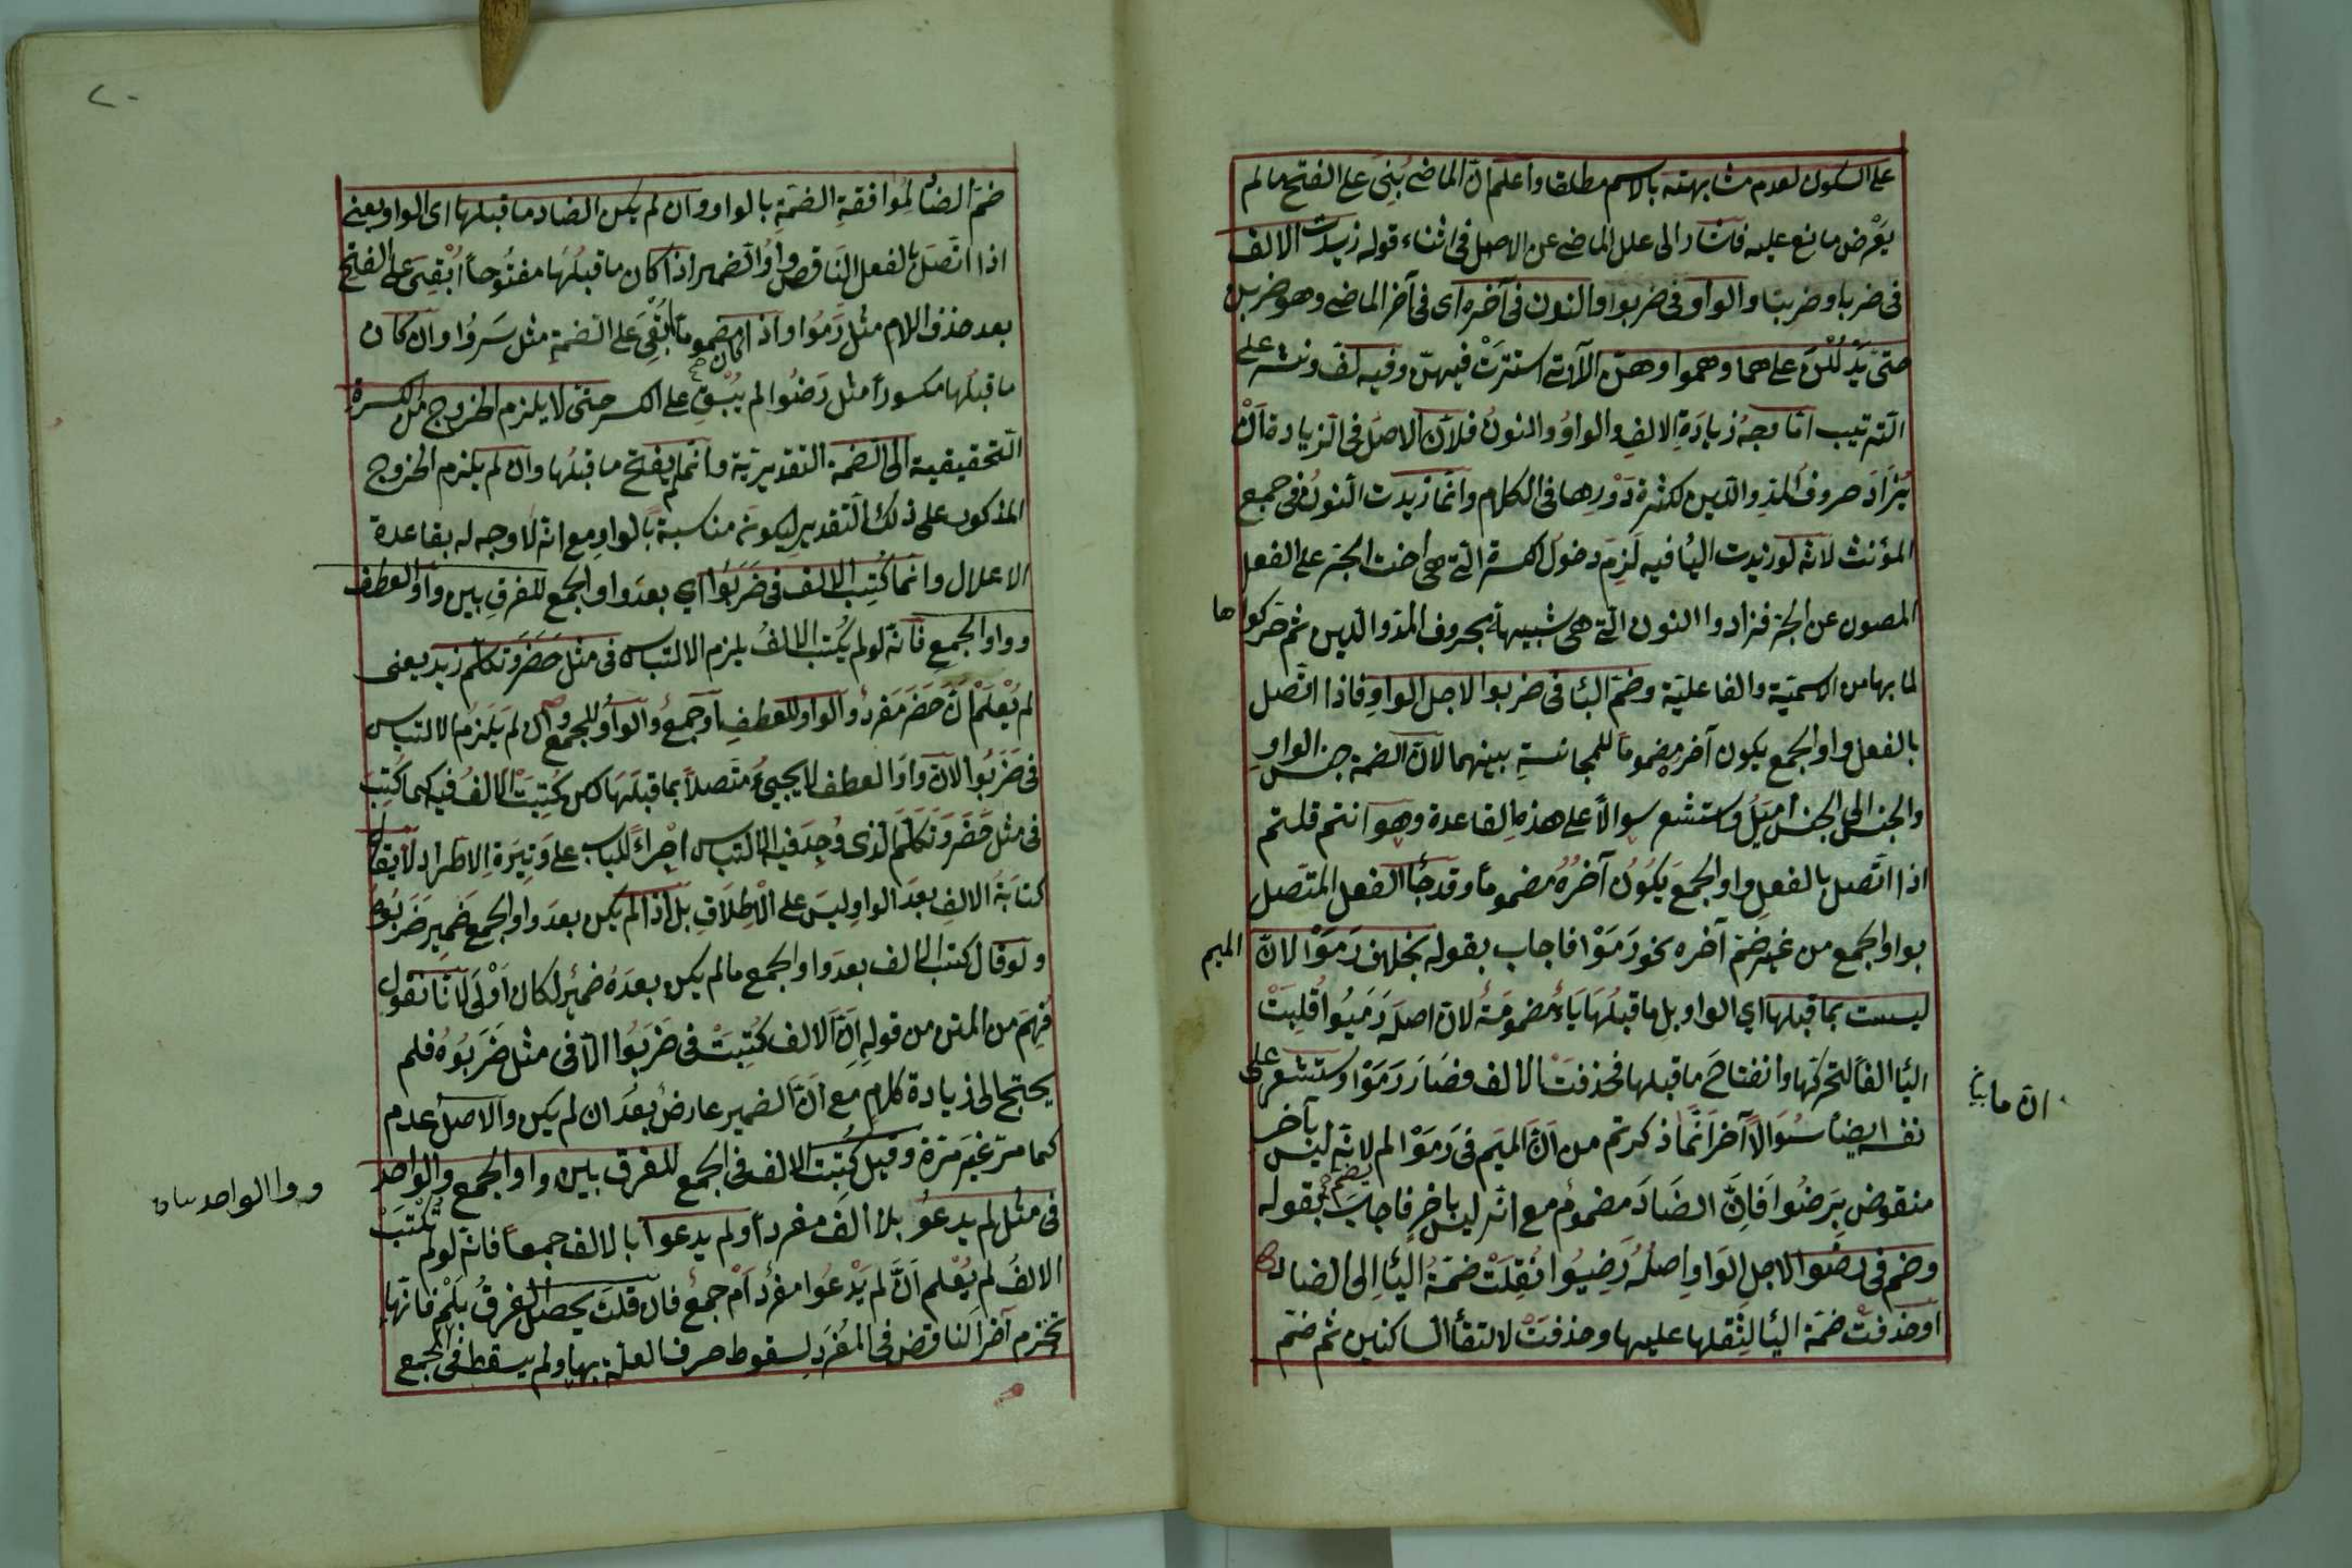 على السكون لعدم مشابهته بالاسم مطلقا واعلم ان الماضى بُنِىَ على الفتح مالم
يَعْرض مانع عليه فاشار الى علل الماضى عن الاصل فى اثناء قوله زيدت الالف
فى ضربا وضربتا والواو فى ضربوا والنون فى آخره اى فى آخر الماضى وهو ضربن
حتى يَدْلُلْنَ على هما وهموا وهن الآتى استترَتْ فيهنّ وفيه لف ونشر على
الترتيب اما وجهُ زيادَةِ الالِفِ والواوُ والنونُ فلانّ الاصل فى الزيادة اَنْ
يُزَادَ حروفُ المدِ والّلين لكثرة دَوْرِها فى الكلام وانّما زيدَت النونُ فى جمع
المؤنث لانه لو زيدت اليأ فيه لَزِمَ دخول الكسرة التى هى اخت الجرّ على الفعل
المصون عن الجرّ فزادوا النون التى هى شبيهة بحروف المدّ والّلين ثم حركوا ها
لما بها من الاسميّة والفاعليّة وضمّ البأ فى ضربوا لاجل الواوِ فاذا اتّصل
بالفعل واو الجمع يكون آخره مضموماً للمجانسةِ بينهما لانّ الضمة جنس الواوِ
والجنس الى الجنس اميَلُ واستشعر سوالاً على هذه القاعدة وهو انتم قلتم
اذا اتّصل بالفعلِ واو الجمعَ يَكُوُن آخرُهُ مضموماً وقد جأ الفعل المتّصل
بواو الجمع من غير ضمّ آخره نحو رَمَوْا فاجاب بقوله بخلاف رَمَوْا لانّ الميم
ليست بما قبلها اي الواو بل ما قبلُهَا يَاءٌ مضمومَةٌ لان اصلَه رَمَيُوا قُلِبَتْ
اليأ الفاً لتحركها وانفتاحَ ما قبلها فحذفتْ الالف فصَارَ رَمَوْا واستشعر على
نفسه ايضاً سُوَالاً آخرَ ممّا ذكرتم من اَنّ الميَم فى رَمَوْا لم لانّه ليْسَ بآخر
ان ما
منقوض بِرَضُوا فَاِنَّ الضَادَ مضمومٌ مع انّه ليس بآخرٍ فاجابَ بقوله
وضم فى رضوا لاجلِ الوَاوِ اِصلُهُ رَضِيُوا نُقِلَتْ ضمّةُ اليَأِ اِلى الضاد
او حذفتْ ضمّة اليأ لثِقلها عليها وحذفتْ لالتقأ الساكنين ثم ضمّ
٢٠
ضمّ الضاُ لِمُوافقةِ الضمّةِ بالواو وان لم يكن الضاد ما قبلها اى الواو يعنى
اذا اتّصَلَ بالفعل النَاقص واوُ الضمير اذا كان ما قبلُها مفتُوحاً اُبْقِىَ على الفتح
بعد حذف اللام مثل رَمَوْا واذا كان مضموماً اُبْقِىَ على الضمةِ مثل سَرُوا وان كان
ما قبلُها مكسوراً مثل رَضُوا لم يُبْقَ على الكسر حتى لا يلزم الخروج من الكسرة
التحقيقية الى الضمة التقديريّة وانّما لم يفتح ما قبلُها وان لم يلزم الخروج
المذكور على ذلك التقدير ليكون مناسبة بالواوِ مع انّه لا وجه له بقاعدة
الاعلال وانّما كُتِب الالف فى ضَرَبُوا اي بعدَ واو الجمع للفرقِ بين واو العطف
وواو الجمع فانّه لو لم يُكتب الالفُ يلزم الالتباس فى مثل حَضَرَ وتكلّم زيد يعنى
لم يُعْلَمْ انَّ حَضَرَ مفردٌ والواو للعطفِ او جمعٌ والواوُ للجمع وان لم يَلزمُ الالتباس
فى ضَرَبُوا لانّ واوَ العطف لا يجيئُ متّصلاً بما قبلَهَا لكن كُتِبَتْ الالفُ فيه كما كُتِبَ
فى مثل حَضَرَ وَتكلّمَ الذى وُجِدَ فيه الالتباس اِجْراءً للباب على وَتِيَرةِ الاطّراد لا يقال
كتابَةُ الالِفِ بعدَ الواوِ ليسَ على الاِطلَاقِ بل اذا لم يكن بعد واو الجمع ضمير ضَرَبُوه
ولو قال كتب الالف بعدَ واو الجمع مالم يكن بعدَهُ ضمير لكان اَوْلَى لانّا نقول
فُهِمَ من المتن من قولهِ اِنّ الالف كُتِبَتْ فى ضَرَبُوا الّا فى مثل ضَرَبُوُه فلم
يحتج الى زيادة كلام مع اَنّ الضمير عارضٌ بعدَ ان لم يكن والاصل عدم
كما مرّ غيَر مَرّة وقيل كُتِبَت الالف فى الجمع للفرق بين واو الجمع والواحد
ووا الواحد
فى مثل لم يدعُو بلا الف مفرداً ولم يدعوا بالالف جمعاً فانّه لو لم تُكْتَبْ
الالفُ لم يُعْلم اَنّ لم يَدْعُوا مفرد اَمْ جمعٌ فان قلتَ يحصل الفرقُ بلَمْ فانّها
تخزم آخر الناقص فى المُفرَدِ لسقوط حرف العلّة بها ولم يسقط فى الجمع